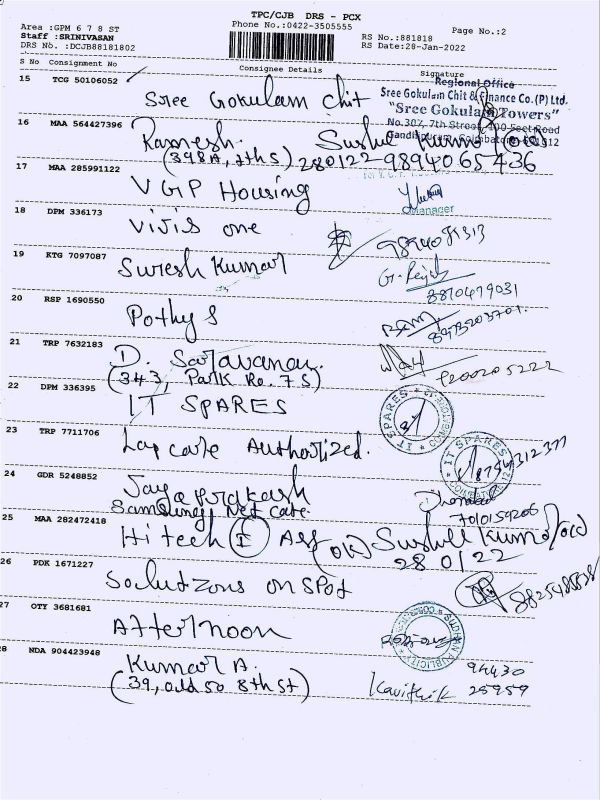 TPC/CJB DRS - PCX
Area :GPM 6 7 8 ST
Phone No.:0422-3505555
Page No.:2
Staff :SRINIVASAN
RS No.:881818
DRS No. :DCJB88181802
RS Date:28-Jan-2022
S No Consignment No
Consignee Details
Signature
15 TCG 50106052
Sree Gokulam Chit
Regional Office
Sree Gokulam Chit & Finance Co.(P) Ltd.
"Sree Gokulam Towers"
No.307, 7th Street, 100 Feet Road
Gandhipuram, Coimbatore
16 MAA 564427396
Ramesh.
(398A, 7th S) 280122 9894065436
17 MAA 285991122
VGP Housing
Manager
18 DPM 336173
Vivis one
19 KTG 7097087
Suresh Kumar
8870479031
20 RSP 1690550
Pothy S
21 TRP 7632183
D. Saravanan.
(343, Park Ro. 7 S)
9200205222
22 DPM 336395
IT SPARES
IT SPARES
23 TRP 7711706
Lap care Authorized.
IT SPARES
24 GDR 5248852
Jaya prakash
Samsung Net Care
7010159206
25 MAA 282472418
Hitech
28 01 22
26 PDK 1671227
Solutzons on spot
27 OTY 3681681
Afternoon
28 NDA 904423948
Kumar A.
(39, old 50 8th St)
94430
25959